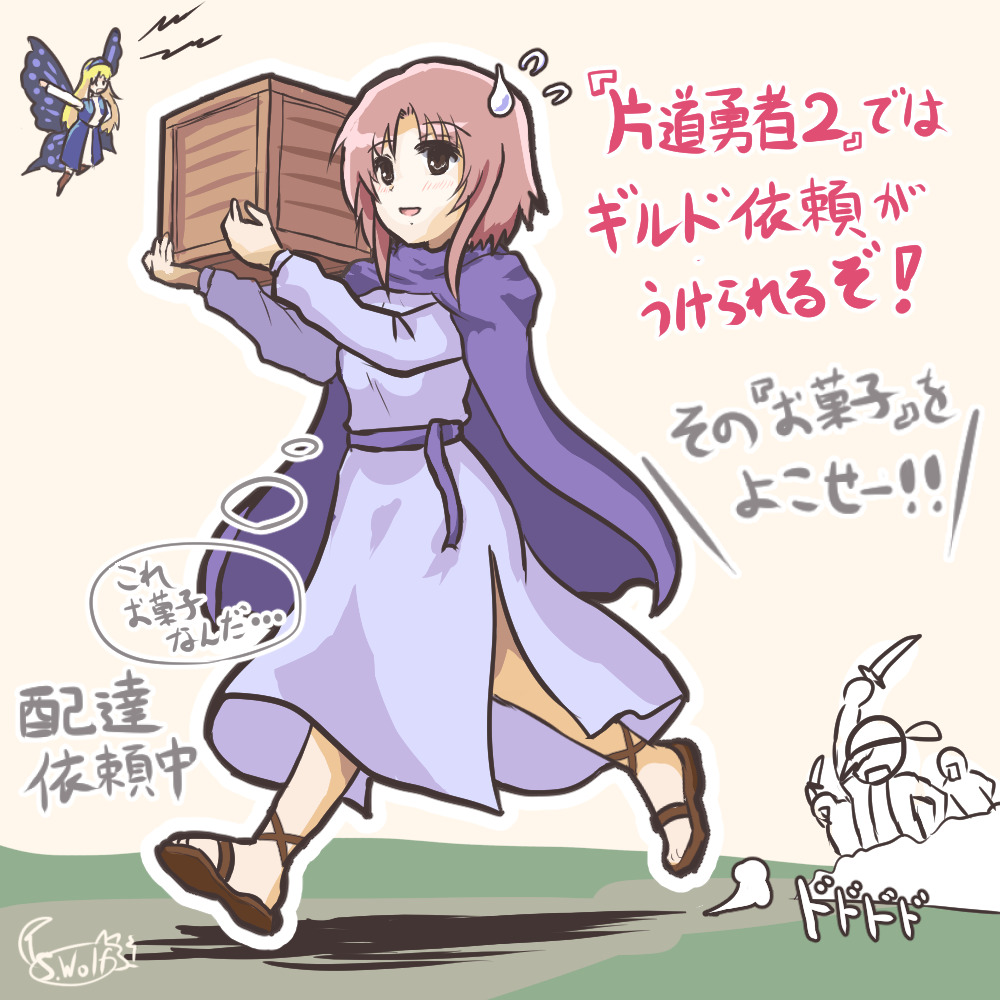 『片道勇者2』では
ギルド依頼が
うけられるぞ!
その『お菓子』を
よこせー!!
これ
お菓子
なんだ・・・
配達
依頼中
ドドドド
S.Wolf